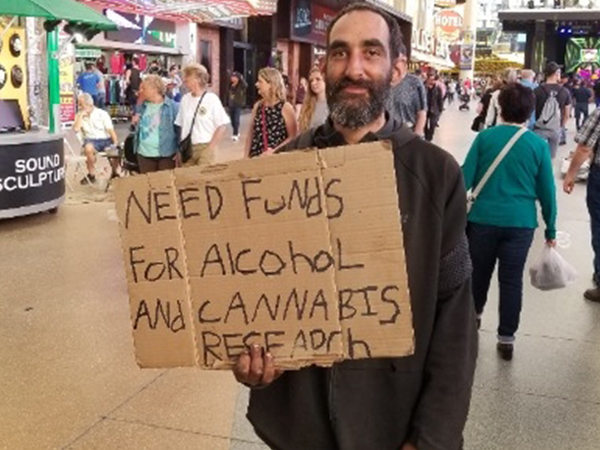 NEED FUNdS
FOR AlcohoL
ANd CANNABIS
RESEARch
SOUND
SCULPTUR
HOTEL